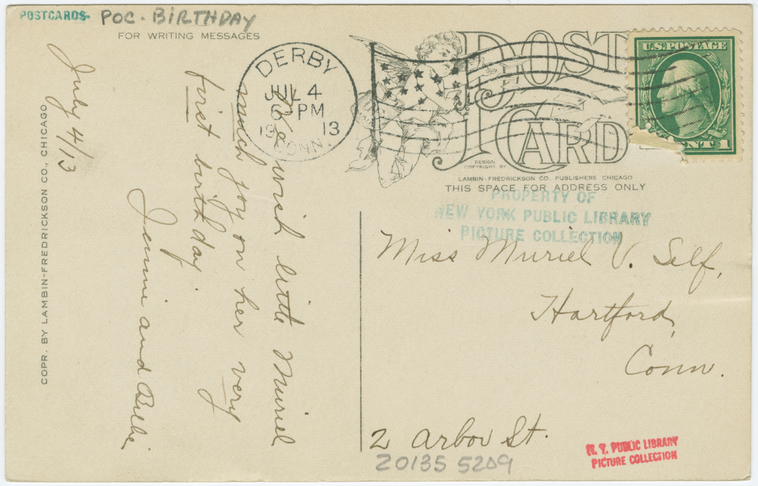 POSTCARDS- POC- BIRTHDAY
FOR WRITING MESSAGES
DERBY
JUL 4
6 PM
1913
CONN.
POST
CARD
DESIGN
COPYRIGHT BY
LAMBIN-FREDRICKSON CO. PUBLISHERS CHICAGO
THIS SPACE FOR ADDRESS ONLY
U.S. POSTAGE
CENT 1
PROPERTY OF
NEW YORK PUBLIC LIBRARY
PICTURE COLLECTION
COPR. BY LAMBIN-FREDRICKSON CO., CHICAGO
July 4/13
We wish little Muriel
much joy on her very
first birthday.
Jennie and Billie
Miss Muriel V. Self,
Hartford,
Conn.
2 Arbor St.
20135 5209
N. Y. PUBLIC LIBRARY
PICTURE COLLECTION